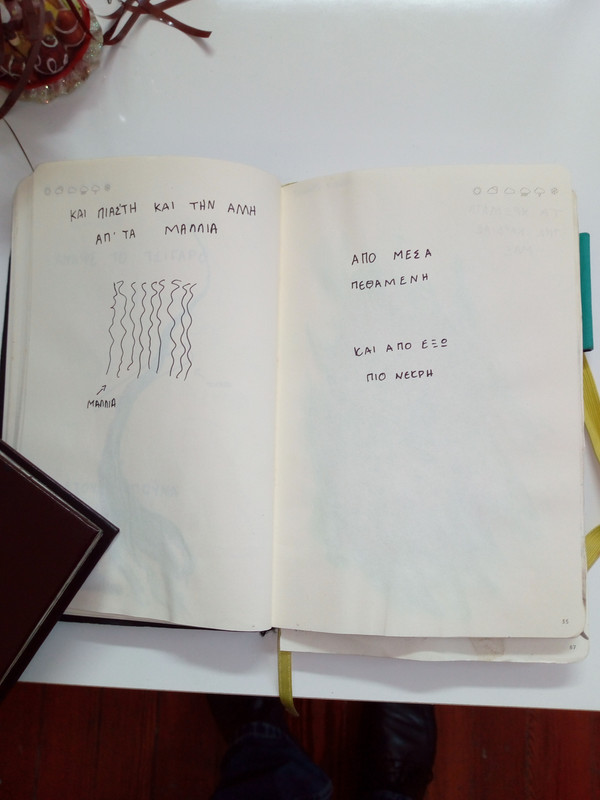 ΚΑΙ ΠΙΑΣ'ΤΗ ΚΑΙ ΤΗΝ ΑΛΛΗ
ΑΠ' ΤΑ ΜΑΛΛΙΑ
ΜΑΛΛΙΑ
ΑΠΟ ΜΕΣΑ
ΠΕΘΑΜΕΝΗ
ΚΑΙ ΑΠΟ ΕΞΩ
ΠΙΟ ΝΕΚΡΗ